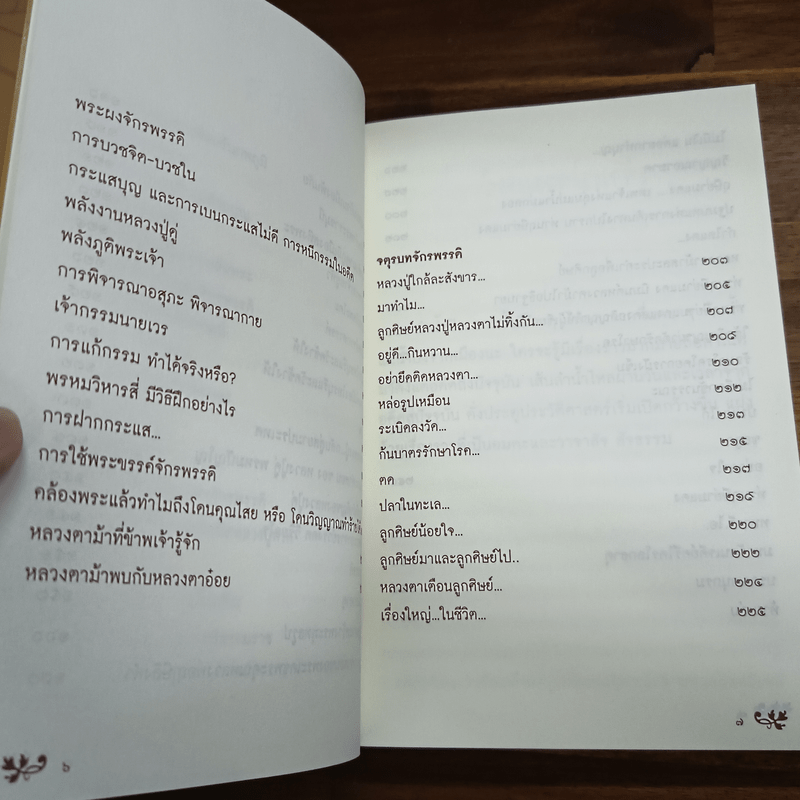 พระผงจักรพรรดิ
การบวชจิต-บวชใน
กระแสบุญ และการเบนกระแสไม่ดี การหนีกรรมในอดีต
พลังงานหลวงปู่ดู่
พลังภูติพระเจ้า
การพิจารณาอสุภะ พิจารณากาย
เจ้ากรรมนายเวร
การแก้กรรม ทำได้จริงหรือ?
พรหมวิหารสี่ มีวิธีฝึกอย่างไร
การฝากกระแส...
การใช้พระขรรค์จักรพรรดิ
คล้องพระแล้วทำไมถึงโดนคุณไสย หรือ โดนวิญญาณทำร้าย
หลวงตาม้าที่ข้าพเจ้ารู้จัก
หลวงตาม้าพบกับหลวงตาอ๋อย
๖
จตุรบทจักรพรรดิ
หลวงปู่ใกล้ละสังขาร... ๒๐๓
มาทำไม... ๒๐๕
ลูกศิษย์หลวงปู่หลวงตาไม่ทิ้งกัน... ๒๐๘
อยู่ดี...กินหวาน... ๒๐๙
อย่ายึดติดหลวงตา... ๒๑๐
หล่อรูปเหมือน ๒๑๒
ระเบิดลงวัด... ๒๑๓
ก้นบาตรรักษาโรค... ๒๑๕
คด ๒๑๗
ปลาในทะเล... ๒๑๙
ลูกศิษย์น้อยใจ... ๒๒๐
ลูกศิษย์มาและลูกศิษย์ไป.. ๒๒๒
หลวงตาเตือนลูกศิษย์... ๒๒๔
เรื่องใหญ่...ในชีวิต... ๒๒๕
๗